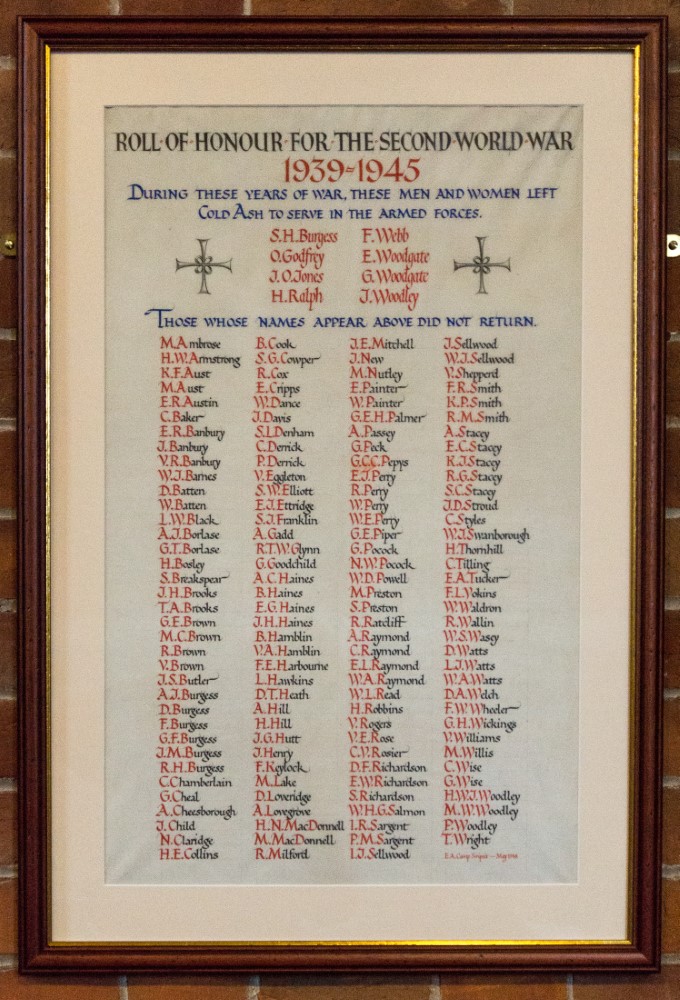 ROLL·OF·HONOUR·FOR·THE·SECOND·WORLD·WAR
1939-1945
DURING THESE YEARS OF WAR, THESE MEN AND WOMEN LEFT
COLD ASH TO SERVE IN THE ARMED FORCES.
S.H.Burgess F.Webb
O.Godfrey E.Woodgate
J.O.Jones G.Woodgate
H.Ralph J.Woodley
THOSE WHOSE NAMES APPEAR ABOVE DID NOT RETURN.
M.Ambrose
H.W.Armstrong
K.F.Aust
M.Aust
E.R.Austin
C.Baker
E.R.Banbury
J.Banbury
V.R.Banbury
W.J.Barnes
D.Batten
W.Batten
L.W.Black
A.J.Borlase
G.T.Borlase
H.Bosley
S.Breakspear
J.H.Brooks
T.A.Brooks
G.E.Brown
M.C.Brown
R.Brown
V.Brown
J.S.Butler
A.J.Burgess
D.Burgess
F.Burgess
G.F.Burgess
J.M.Burgess
R.H.Burgess
C.Chamberlain
G.Cheal
A.Cheesborough
J.Child
N.Claridge
H.E.Collins
B.Cook
S.G.Cowper
R.Cox
E.Cripps
W.Dance
J.Davis
S.J.Denham
C.Derrick
P.Derrick
V.Eggleton
S.W.Elliott
E.J.Ettridge
S.J.Franklin
A.Gadd
R.T.W.Glynn
G.Goodchild
A.C.Haines
B.Haines
E.G.Haines
J.H.Haines
B.Hamblin
V.A.Hamblin
F.E.Harbourne
L.Hawkins
D.T.Heath
A.Hill
H.Hill
J.G.Hutt
J.Henry
F.Keylock
M.Lake
D.Loveridge
A.Lovegrove
H.N.MacDonnell
M.MacDonnell
R.Milford
J.E.Mitchell
J.New
M.Nutley
E.Painter
W.Painter
G.E.H.Palmer
A.Passey
G.Peck
G.C.C.Pepys
E.J.Perry
R.Perry
W.Perry
W.E.Perry
G.E.Piper
G.Pocock
N.W.Pocock
W.D.Powell
M.Preston
S.Preston
R.Ratcliff
A.Raymond
C.Raymond
E.L.Raymond
W.A.Raymond
W.L.Read
H.Robbins
V.Rogers
V.E.Rose
C.V.Rosier
D.F.Richardson
E.W.Richardson
S.Richardson
W.H.G.Salmon
I.R.Sargent
P.M.Sargent
L.J.Sellwood
J.Sellwood
W.J.Sellwood
V.Shepperd
F.R.Smith
K.P.Smith
R.M.Smith
A.Stacey
E.C.Stacey
K.J.Stacey
R.G.Stacey
S.C.Stacey
J.D.Stroud
C.Styles
W.J.Swanborough
H.Thornhill
C.Tilling
E.A.Tucker
F.L.Vokins
W.Waldron
R.Wallin
W.S.Wasey
D.Watts
L.J.Watts
W.A.Watts
D.A.Welch
F.W.Wheeler
G.H.Wickings
V.Williams
M.Willis
C.Wise
G.Wise
H.W.J.Woodley
M.W.Woodley
P.Woodley
T.Wright